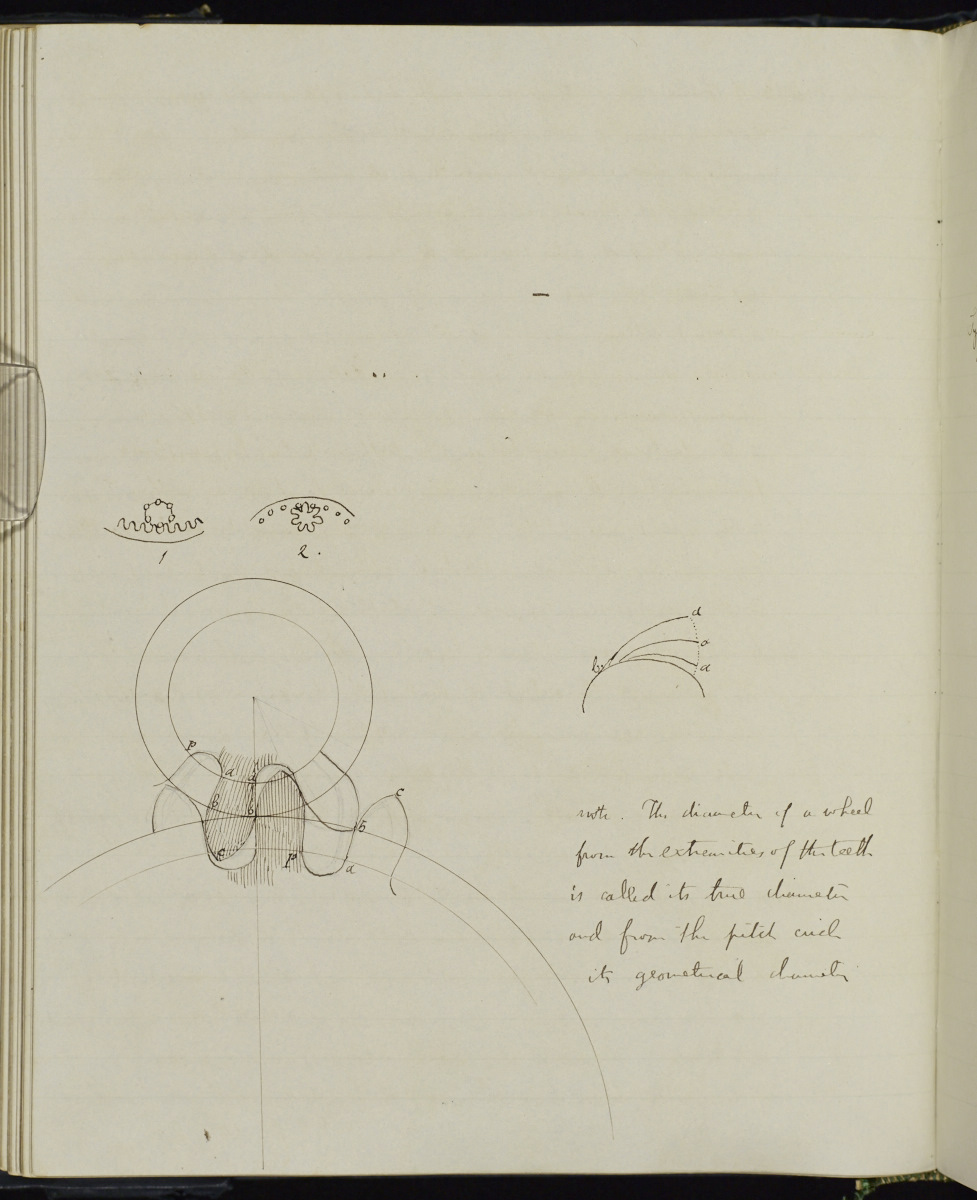 1
2.
d
a
a
b
p
a
d
b
b
c
p
a
b
c
note. The diameter of a wheel
from the extremities of the teeth
is called its true diameter
and from the pitch circle
its geometrical diameter